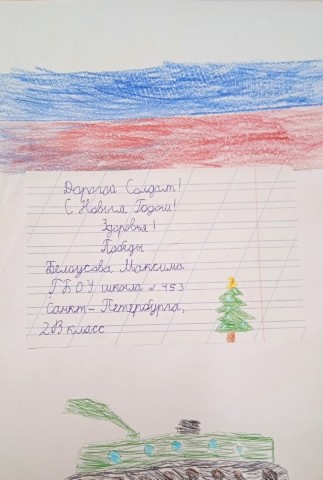 Дорогой Солдат!
С Новым Годом!
Здоровья!
Победы
Белоусова Максима
ГБОУ школа № 453
Санкт-Петербурга,
2В класс